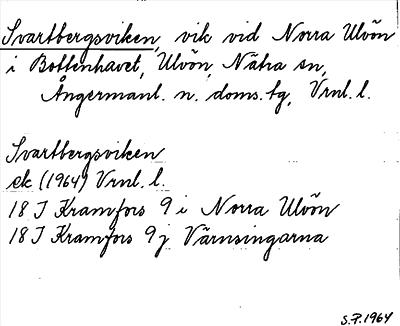 Svartbergsviken, vik vid Norra Ulvön
i Bottenhavet, Ulvön, Nätra sn,
Ångermanl. n. doms.tg, Vrnl. l.
Svartbergsviken
ek (1964) Vrnl. l.
18 J Kramfors 9 i Norra Ulvön
18 J Kramfors 9 j Värnsingarna
S.P. 1964